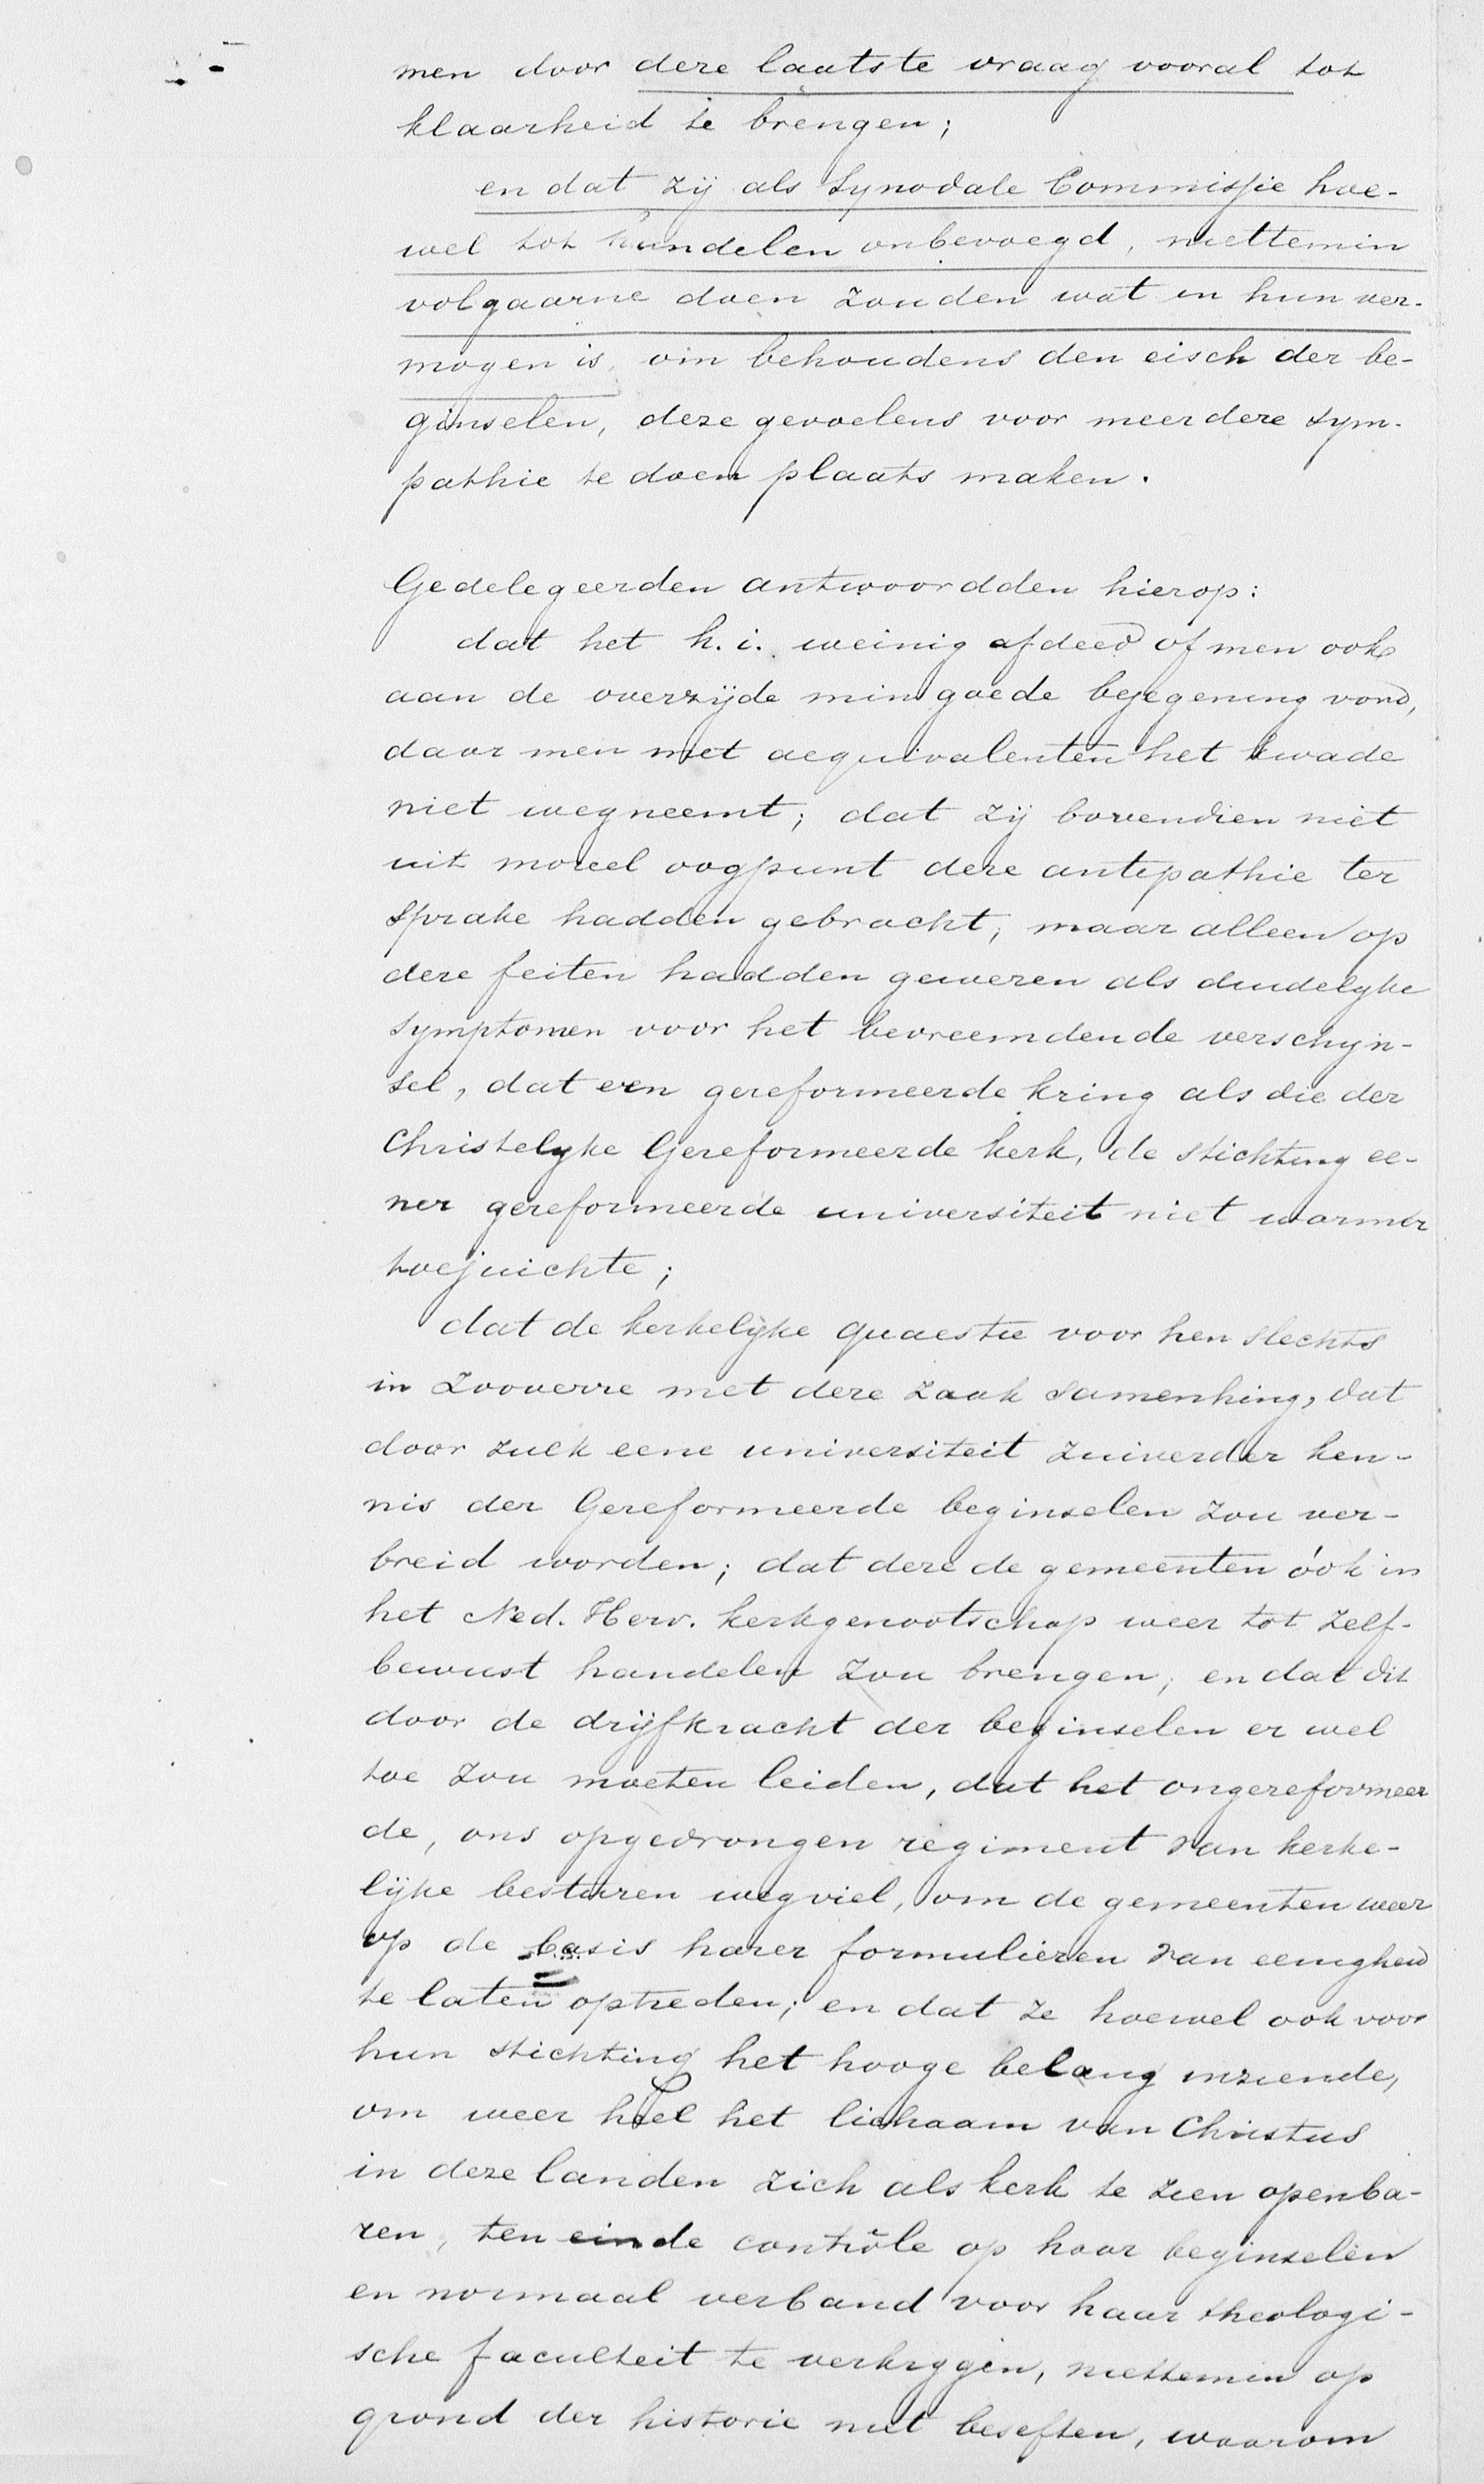 men door deze laatste vraag vooral tot
klaarheid te brengen;
en dat zij als Synodale Commissie hoe-
wel tot handelen onbevoegd, niettemin
volgaarne doen zouden wat in hun ver-
mogen is, om behoudens den eisch der be-
ginselen, deze gevoelens voor meerdere sym-
pathie te doen plaats maken.
Gedelegeerden antwoordden hierop:
dat het h. i. weinig afdeed of men ook
aan de overzijde min goede bejegening vond,
daar men met aequivalenten het kwade
niet wegneemt; dat zij bovendien niet
uit moreel oogpunt deze antipathie ter
sprake hadden gebracht, maar alleen op
deze feiten hadden gewezen als duidelyke
symptomen voor het bevreemdende verschyn-
sel, dat een gereformeerde kring als die der
Christelyke Gereformeerde kerk, de stichting ee-
ner gereformeerde universiteit niet warmer
toejuichte;
dat de kerkelijke quaestie voor hen slechts
in zooverre met deze zaak samenhing, dat
door zulk eene universiteit zuiverder ken-
nis der Gereformeerde beginselen zou ver-
breid worden; dat deze de gemeenten óok in
het Ned. Herv. kerkgenootschap weer tot zelf-
bewust handelen zou brengen; en dat dit
door de drijfkracht der beginselen er wel
toe zou moeten leiden, dat het ongereformeer
de, ons opgedrongen regiment van kerke-
lijke besturen wegviel, om de gemeenten weer
op de basis harer formulieren van eenigheid
te laten optreden; en dat ze hoewel ook voor
hun stichting het hooge belang inziende,
om weer heel het lichaam van Christus
in deze landen zich als kerk te zien openba-
ren, ten einde contrôle op haar beginselen
en normaal verband voor haar theologi-
sche faculteit te verkrygen, niettemin op
grond der historie niet beseften, waarom